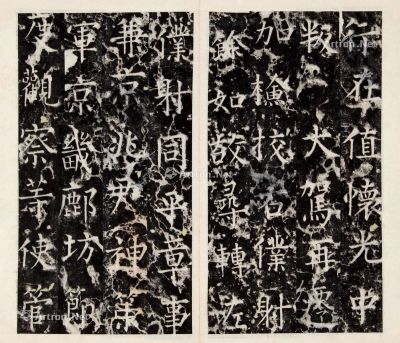 行在值懷光中
叛大駕再遷
加檢校右僕射
餘如故尋轉左
僕射同平章事
兼京兆尹神策
軍京畿鄜坊節
度觀察等使管
Artron.Net